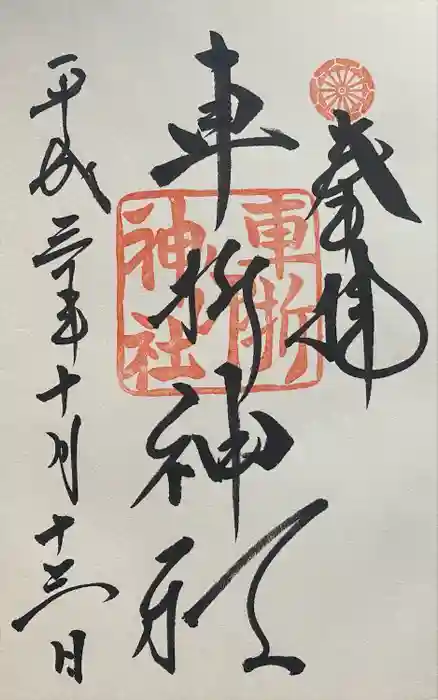 奉拝
車折神社
車折神社
平成三十年十月十三日